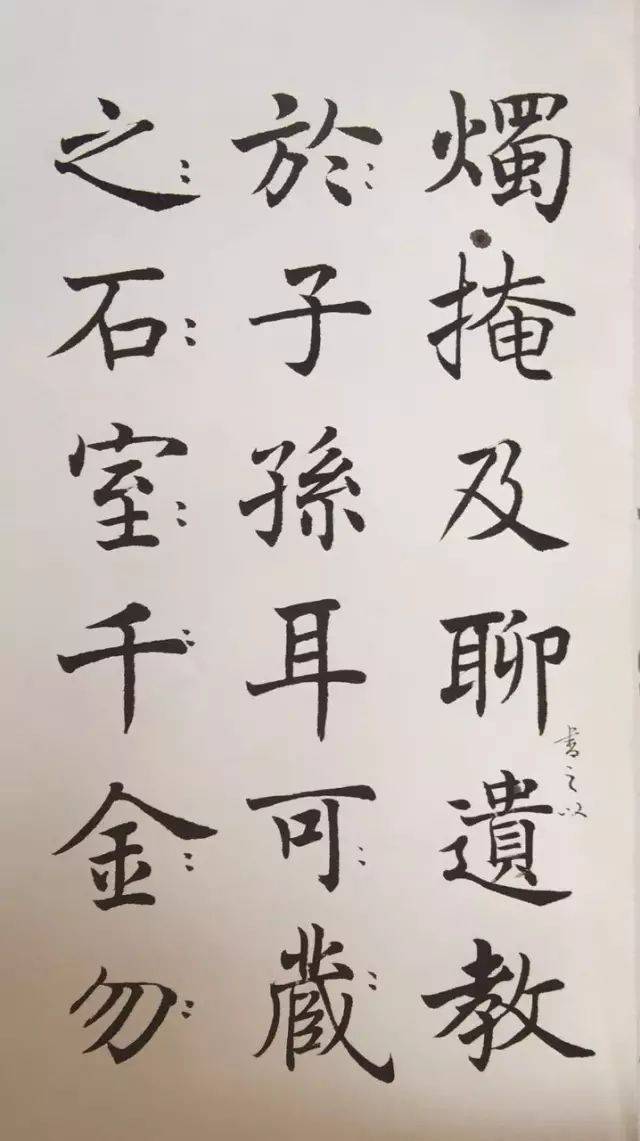 燭掩及聊遺教
書之以
於子孫耳可蔵
之石室千金勿